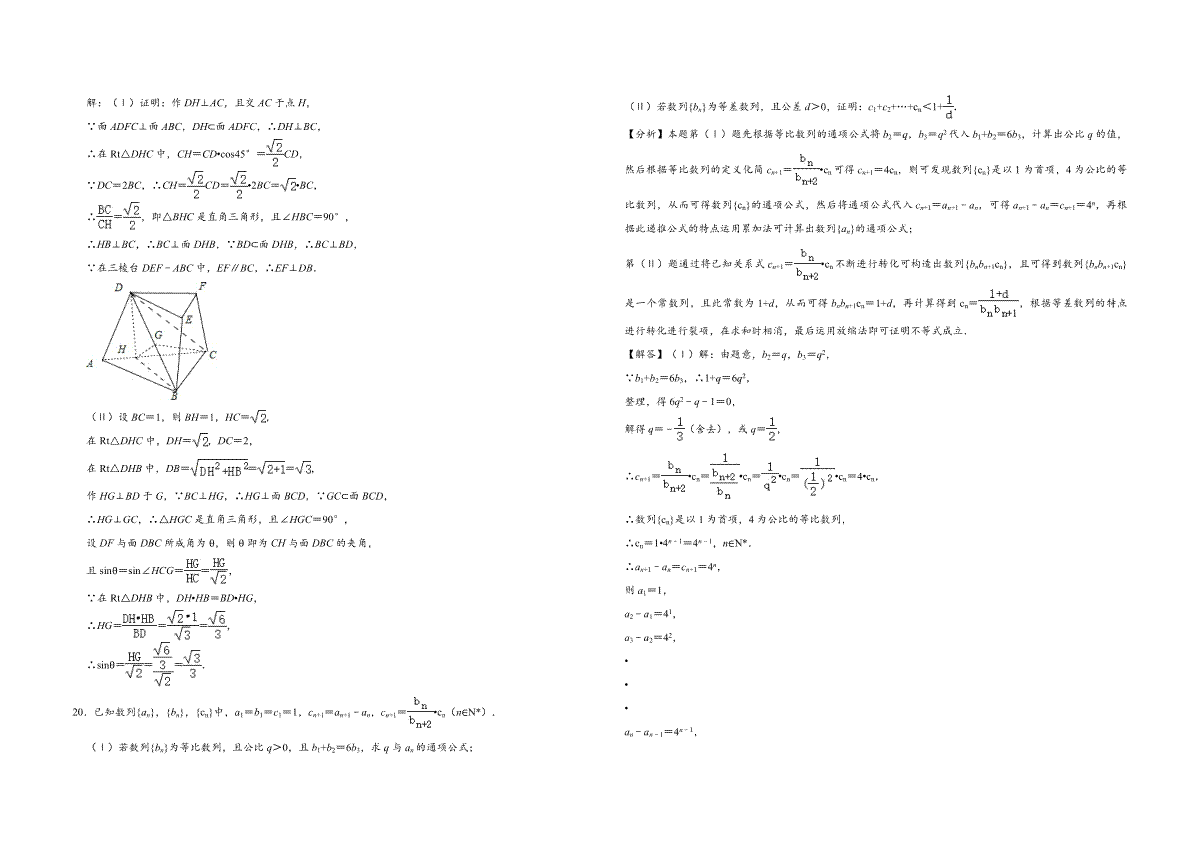 解：（Ⅰ）证明：作 DH⊥AC，且交 AC 于点 H，
∵面 ADFC⊥面 ABC，DH⊂面 ADFC，∴DH⊥BC，
∴在 Rt△DHC 中，CH＝CD•cos45°＝√2/2CD，
∵DC＝2BC，∴CH＝√2/2CD＝√2/2•2BC＝√2•BC，
∴BC/CH＝√2/2，即△BHC 是直角三角形，且∠HBC＝90°，
∴HB⊥BC，∴BC⊥面 DHB，∵BD⊂面 DHB，∴BC⊥BD，
∵在三棱台 DEF﹣ABC 中，EF∥BC，∴EF⊥DB．
D
F
E
G
H
C
A
B
（Ⅱ）设 BC＝1，则 BH＝1，HC＝√2，
在 Rt△DHC 中，DH＝√2，DC＝2，
在 Rt△DHB 中，DB＝√(DH²+HB²)＝√(2+1)＝√3，
作 HG⊥BD 于 G，∵BC⊥HG，∴HG⊥面 BCD，∵GC⊂面 BCD，
∴HG⊥GC，∴△HGC 是直角三角形，且∠HGC＝90°，
设 DF 与面 DBC 所成角为 θ，则 θ 即为 CH 与面 DBC 的夹角，
且 sinθ＝sin∠HCG＝HG/HC＝HG/√2，
∵在 Rt△DHB 中，DH•HB＝BD•HG，
∴HG＝DH•HB/BD＝√2•1/√3＝√6/3，
∴sinθ＝HG/√2＝(√6/3)/√2＝√3/3．
20．已知数列{aₙ}，{bₙ}，{cₙ}中，a₁＝b₁＝c₁＝1，cₙ₊₁＝aₙ₊₁﹣aₙ，cₙ₊₁＝bₙ/bₙ₊₂•cₙ（n∈N*）．
（Ⅰ）若数列{bₙ}为等比数列，且公比 q＞0，且 b₁+b₂＝6b₃，求 q 与 aₙ 的通项公式；
（Ⅱ）若数列{bₙ}为等差数列，且公差 d＞0，证明：c₁+c₂+…+cₙ＜1+1/d．
【分析】本题第（Ⅰ）题先根据等比数列的通项公式将 b₂＝q，b₃＝q² 代入 b₁+b₂＝6b₃，计算出公比 q 的值，
然后根据等比数列的定义化简 cₙ₊₁＝bₙ/bₙ₊₂•cₙ 可得 cₙ₊₁＝4cₙ，则可发现数列{cₙ}是以 1 为首项，4 为公比的等
比数列，从而可得数列{cₙ}的通项公式，然后将通项公式代入 cₙ₊₁＝aₙ₊₁﹣aₙ，可得 aₙ₊₁﹣aₙ＝cₙ₊₁＝4ⁿ，再根
据此递推公式的特点运用累加法可计算出数列{aₙ}的通项公式；
第（Ⅱ）题通过将已知关系式 cₙ₊₁＝bₙ/bₙ₊₂•cₙ 不断进行转化可构造出数列{bₙbₙ₊₁cₙ}，且可得到数列{bₙbₙ₊₁cₙ}
是一个常数列，且此常数为 1+d，从而可得 bₙbₙ₊₁cₙ＝1+d，再计算得到 cₙ＝(1+d)/(bₙbₙ₊₁)，根据等差数列的特点
进行转化进行裂项，在求和时相消，最后运用放缩法即可证明不等式成立．
【解答】（Ⅰ）解：由题意，b₂＝q，b₃＝q²，
∵b₁+b₂＝6b₃，∴1+q＝6q²，
整理，得 6q²﹣q﹣1＝0，
解得 q＝﹣1/3（舍去），或 q＝1/2，
∴cₙ₊₁＝bₙ/bₙ₊₂•cₙ＝1/(bₙ₊₂/bₙ)•cₙ＝1/q²•cₙ＝1/(1/2)²•cₙ＝4•cₙ，
∴数列{cₙ}是以 1 为首项，4 为公比的等比数列，
∴cₙ＝1•4ⁿ⁻¹＝4ⁿ⁻¹，n∈N*．
∴aₙ₊₁﹣aₙ＝cₙ₊₁＝4ⁿ，
则 a₁＝1，
a₂﹣a₁＝4¹，
a₃﹣a₂＝4²，
•
•
•
aₙ﹣aₙ₋₁＝4ⁿ⁻¹，